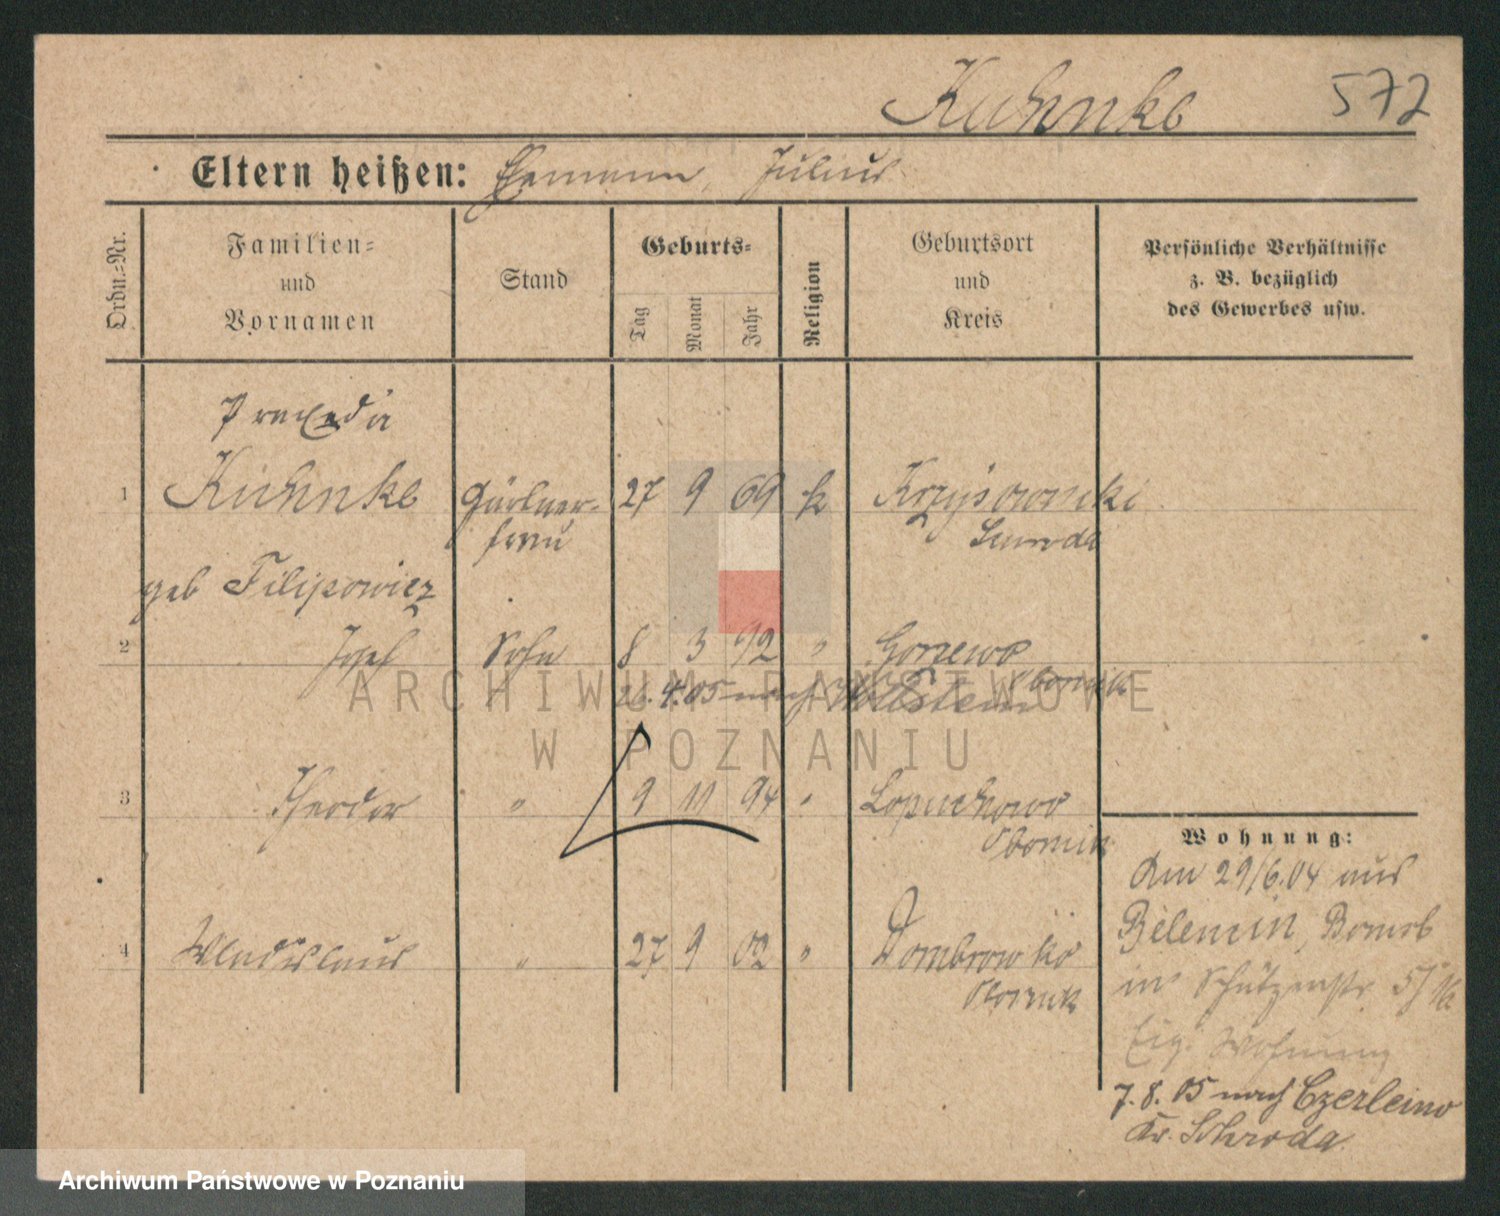 Kuhnke 572
Eltern heißen: Ehemann, Julius
Ordn.-Nr.
Familien-
und
Vornamen
Stand
Geburts-
Tag
Monat
Jahr
Religion
Geburtsort
und
Kreis
Persönliche Verhältnisse
z. B. bezüglich
des Gewerbes usw.
Praxeda
1 Kuhnke Gärtner- 27 9 69 k
frau Schroda
geb Filipowicz
2 Josef Sohn 8 3 92 " Gorzewo
Obornik
26.4.05 nach Wollstein
3 Theodor " 9 11 94 " Lopuchowo
Obornik
4 Wladislaus " 27 9 02 " Dombrowko
Obornik
Wohnung:
Am 29/6.04 aus
Bomst
in Schützenstr.
Eig. Wohnung
7.8.05 nach Czerleino
Kr. Schroda
ARCHIWUM PAŃSTWOWE
W POZNANIU
Archiwum Państwowe w Poznaniu